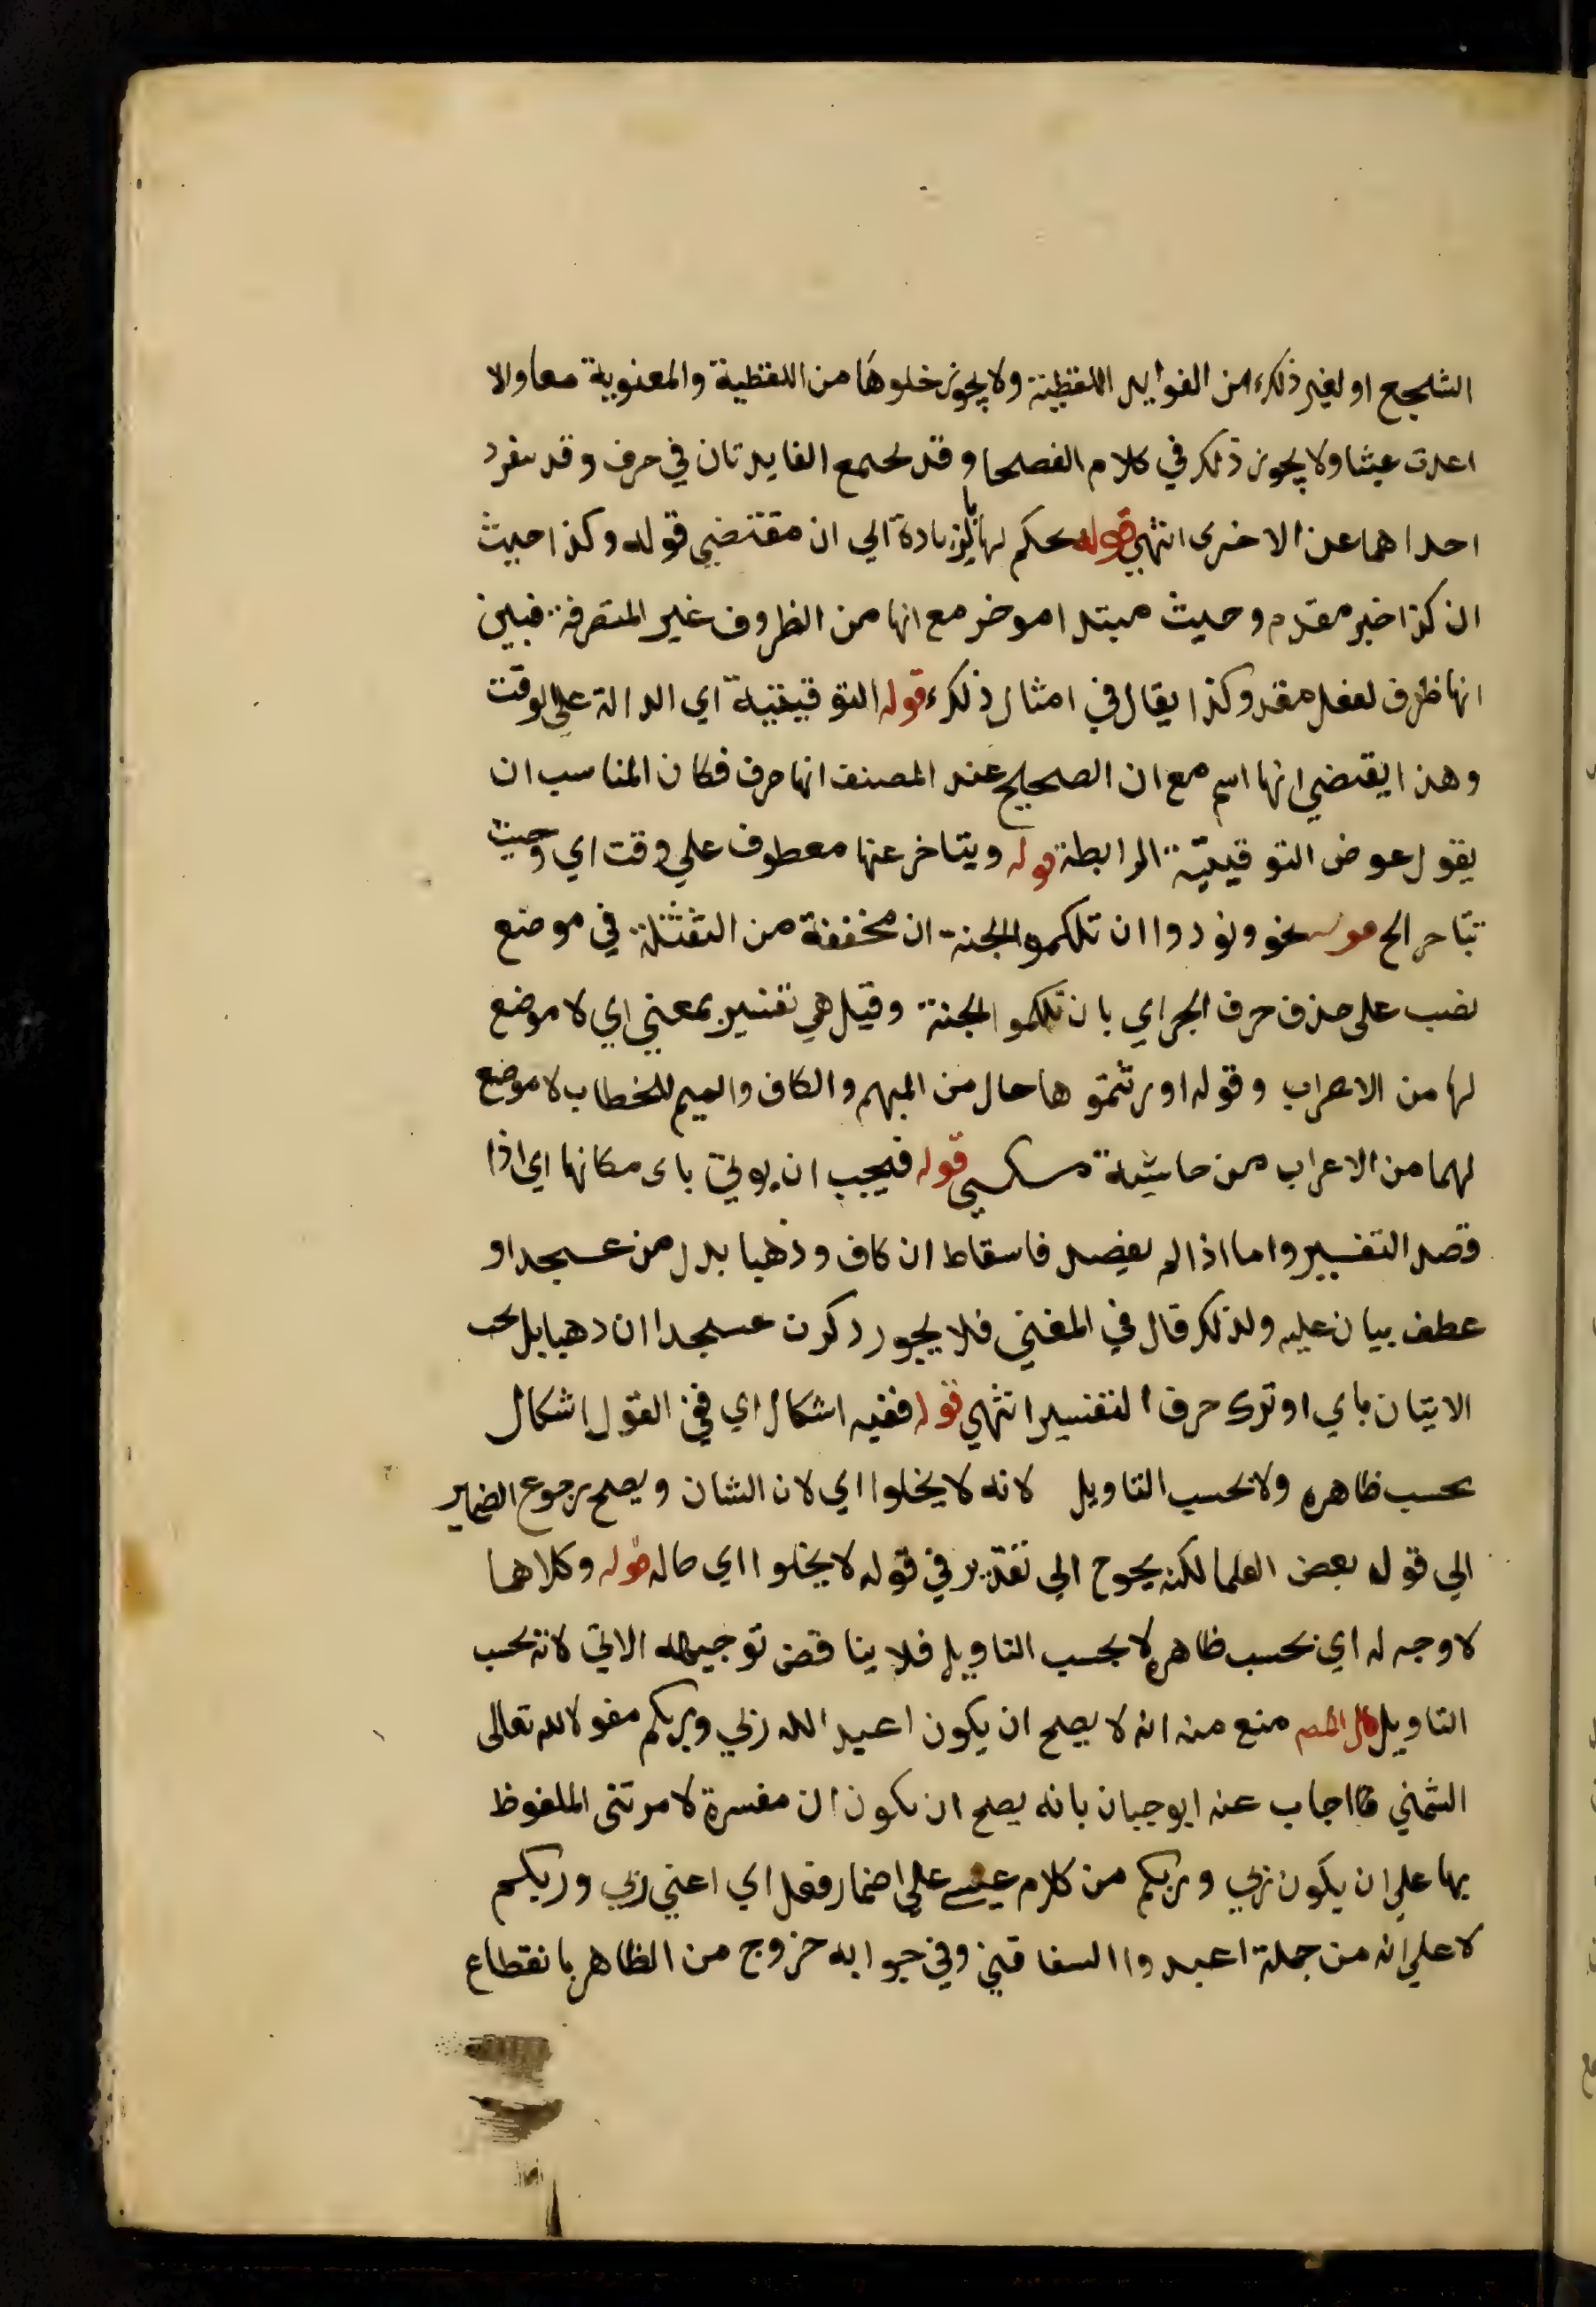 الشجع او لغير ذلك من الفوايد اللفظية ولا يجوز خلوها من اللفظية والمعنوية معا والا
اعدت عبثا ولا يجوز ذلك في كلام الفصحا وقد يجتمع الفايدتان في حرف وقد ينفرد
احداهما عن الاخرى انتهي قوله حكم لها بالزيادة الي ان مقتضي قوله وكذا حيث
ان كذا خبر مقدم وحيث مبتدا موخر مع انها من الظروف غير المتصرفة فبين
انها ظرف لفعل مقدر وكذا يقال في امثال ذلك قوله التوقيتية اي الدالة علي الوقت
وهذا يقتضي انها اسم مع ان الصحيح عند المصنف انها حرف فكان المناسب ان
يقول عوض التوقيتية الرابطة قوله ويتاخر عنها معطوف علي وقت اي وحيث
يتاخر الح قوله نحو ونودوا ان تلكموا الجنة ان مخففة من الثقيلة في موضع
نصب على حذف حرف الجر اي بان تلكموا الجنة وقيل هي تفسير بمعني اي لا موضع
لها من الاعراب وقوله اورثتموها حال من المبهم والكاف والميم للخطاب لا موضع
لهما من الاعراب من حاشية قوله فيجب ان يوتي باي مكانها اي اذا
قصد التفسير واما اذا لم يقصد فاسقاط ان كاف وذهبا بدل من عسجدا او
عطف بيان عليه ولذلك قال في المغني فلا يجوز ذكرت عسجدا ان ذهبا بل يجب
الاتيان باي او ترك حرف التفسير انتهي قوله ففيه اشكال اي ففي القول اشكال
بحسب ظاهره ولا بحسب التاويل لانه لا يخلوا اي لان الشان ويصلح رجوع الضمير
الي قول بعض العلما لكنه يحوج الي تقدير في قوله لا يخلوا اي حاله قوله وكلاهما
لا وجه له اي بحسب ظاهره لا بحسب التاويل فلا يناقض توجيهه الاتي لانه بحسب
التاويل قال المص منع منه انه لا يصلح ان يكون اعبد الله ربي وربكم مقولا لله تعالى
الشمني فاجاب عنه ابوحيان بانه يصلح ان يكون ان مفسرة لامرتني الملفوظ
بها علي ان يكون ربي وربكم من كلام عيسى علي اضمار فعل اي اعني ربي وربكم
لا علي انه من جملة اعبدوا السفاقسي وفي جوابه خروج من الظاهر بانقطاع